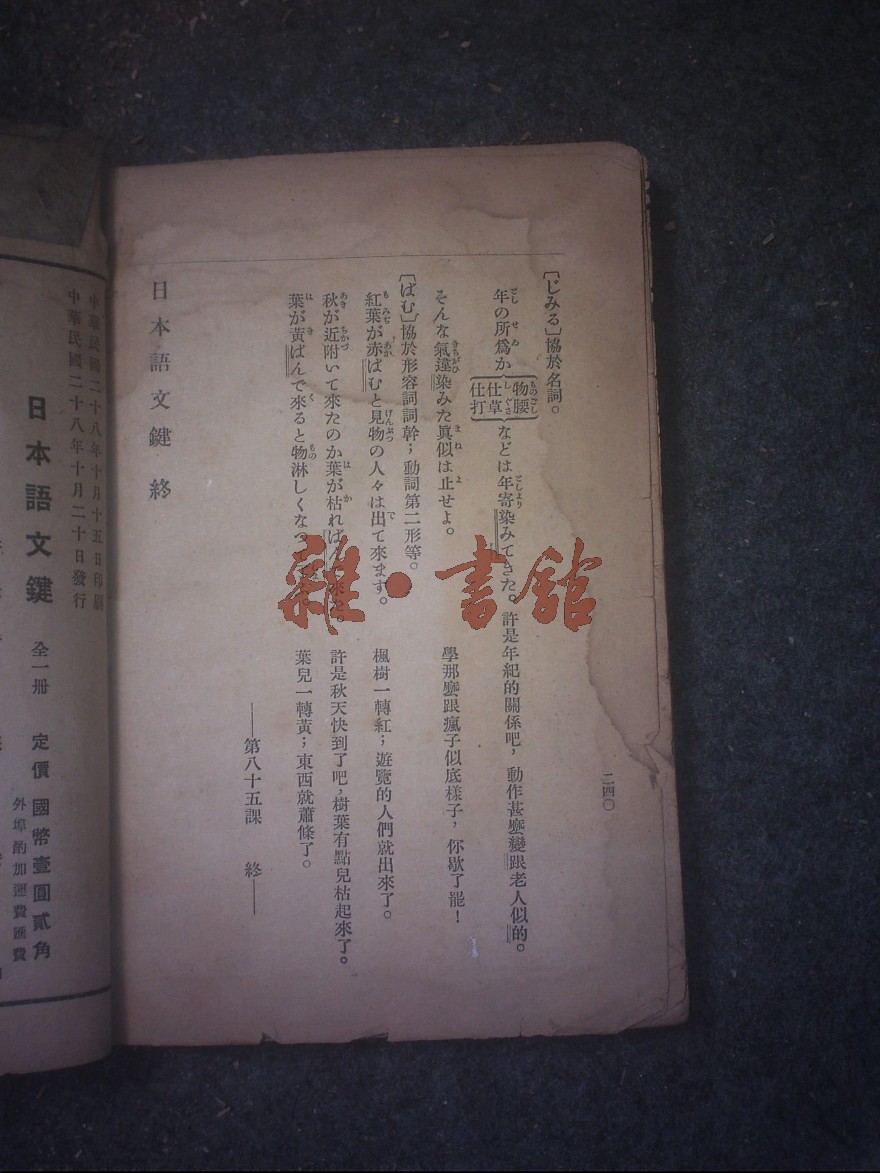 二四〇
〔じみる〕協於名詞。
年の所爲か{物腰 仕草 仕打}などは年寄染みてきた。許是年紀的關係吧，動作甚麼變跟老人似的。
そんな氣違染みた眞似は止せよ。 學那麼跟瘋子似底樣子，你歇了罷！
〔ばむ〕協於形容詞詞幹；動詞第二形等。
紅葉が赤ばむと見物の人々は出て來ます。 楓樹一轉紅；遊覽的人們就出來了。
秋が近附いて來たのか葉が枯れば 許是秋天快到了吧，樹葉有點兒枯起來了。
葉が黃ばんで來ると物淋しくな 葉兒一轉黃；東西就蕭條了。
——第八十五課 終——
日本語文鍵 終
雜·書館
中華民國二十八年十月十五日印刷
中華民國二十八年十月二十日發行
日本語文鍵
全一册 定價國幣壹圓貳角
外埠酌加運費匯費